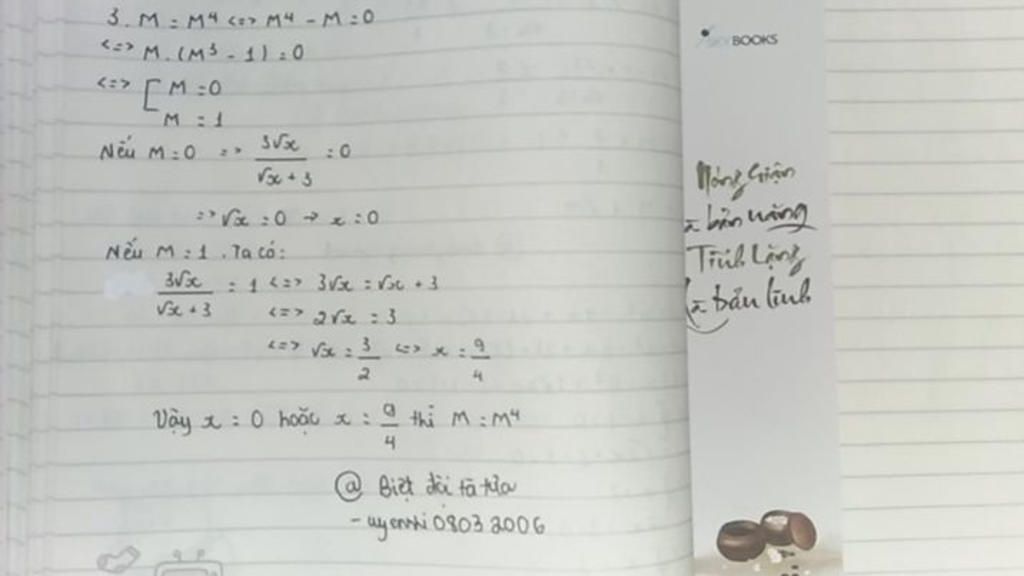 3. M = M⁴ <=> M⁴ - M = 0
<=> M. (M³ - 1) = 0
<=> [ M = 0
M = 1
Nếu M = 0 => 3√x / √x + 3 = 0
=> √x = 0 → x = 0
Nếu M = 1. Ta có:
3√x / √x + 3 = 1 <=> 3√x = √x + 3
<=> 2√x = 3
<=> √x = 3/2 <=> x = 9/4
Vậy x = 0 hoặc x = 9/4 thì M = M⁴
@ Biệt đội
0803 2006
SKYBOOKS
Nóng Giận
là bản năng
Tĩnh Lặng
là bản lĩnh